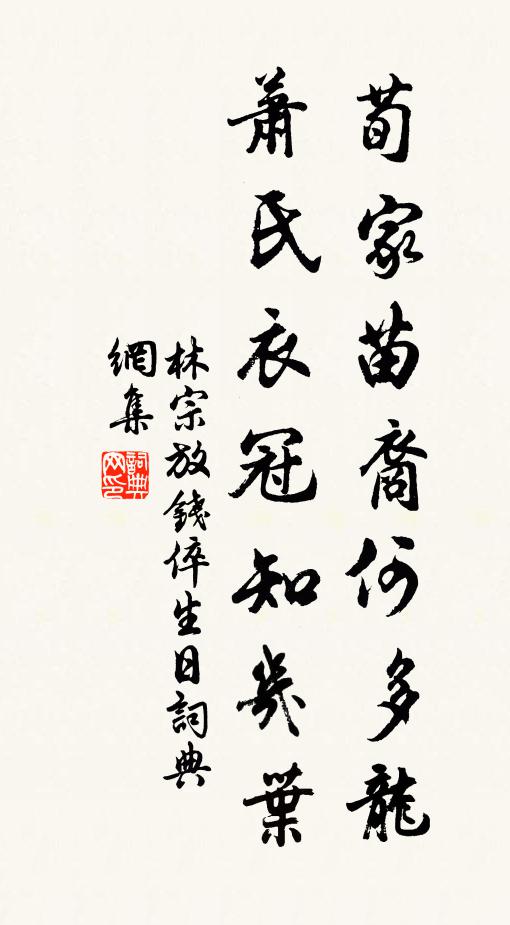 荀家苗裔何多龍
蕭氏衣冠知幾葉
林宗放錢倅生日詞典
網集
詞典網印